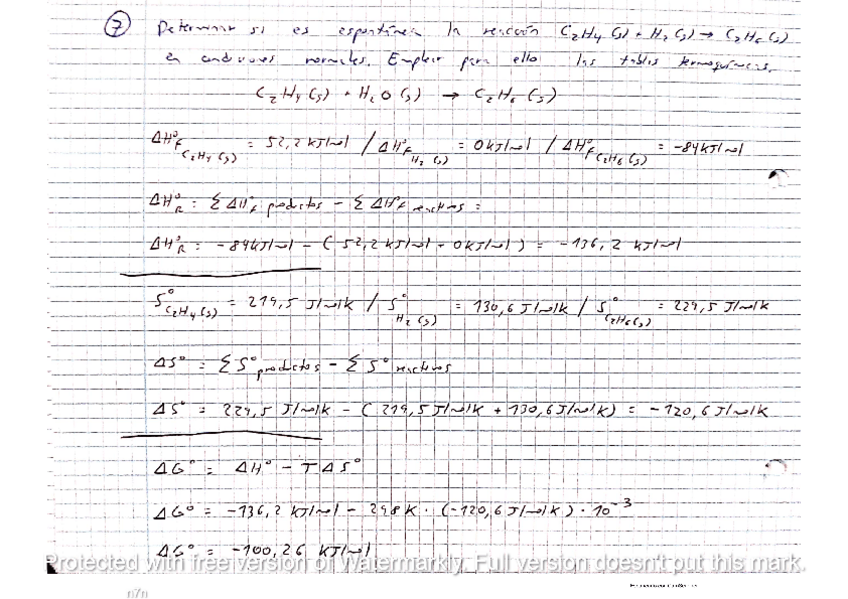 7 Determinar si es espontánea la reacción C₂H₄(g) + H₂(g) → C₂H₆(g)
en condiciones normales. Emplear para ello las tablas termoquímicas.
C₂H₄(g) + H₂O(g) → C₂H₆(g)
ΔH°f C₂H₄(g) = 52,2 kJ/mol / ΔH°f H₂(g) = 0 kJ/mol / ΔH°f C₂H₆(g) = -84 kJ/mol
ΔH°R = Σ ΔH°f productos - Σ ΔH°f reactivos =
ΔH°R = -84 kJ/mol - (52,2 kJ/mol + 0 kJ/mol) = -136,2 kJ/mol
S° C₂H₄(g) = 219,5 J/molK / S° H₂(g) = 130,6 J/molK / S° C₂H₆(g) = 229,5 J/molK
ΔS° = Σ S° productos - Σ S° reactivos
ΔS° = 229,5 J/molK - (219,5 J/molK + 130,6 J/molK) = -120,6 J/molK
ΔG° = ΔH° - TΔS°
ΔG° = -136,2 kJ/mol - 298K · (-120,6 J/molK) · 10⁻³
ΔG° = -100,26 kJ/mol
Protected with free version of Watermarkly. Full version doesn't put this mark.
n7n